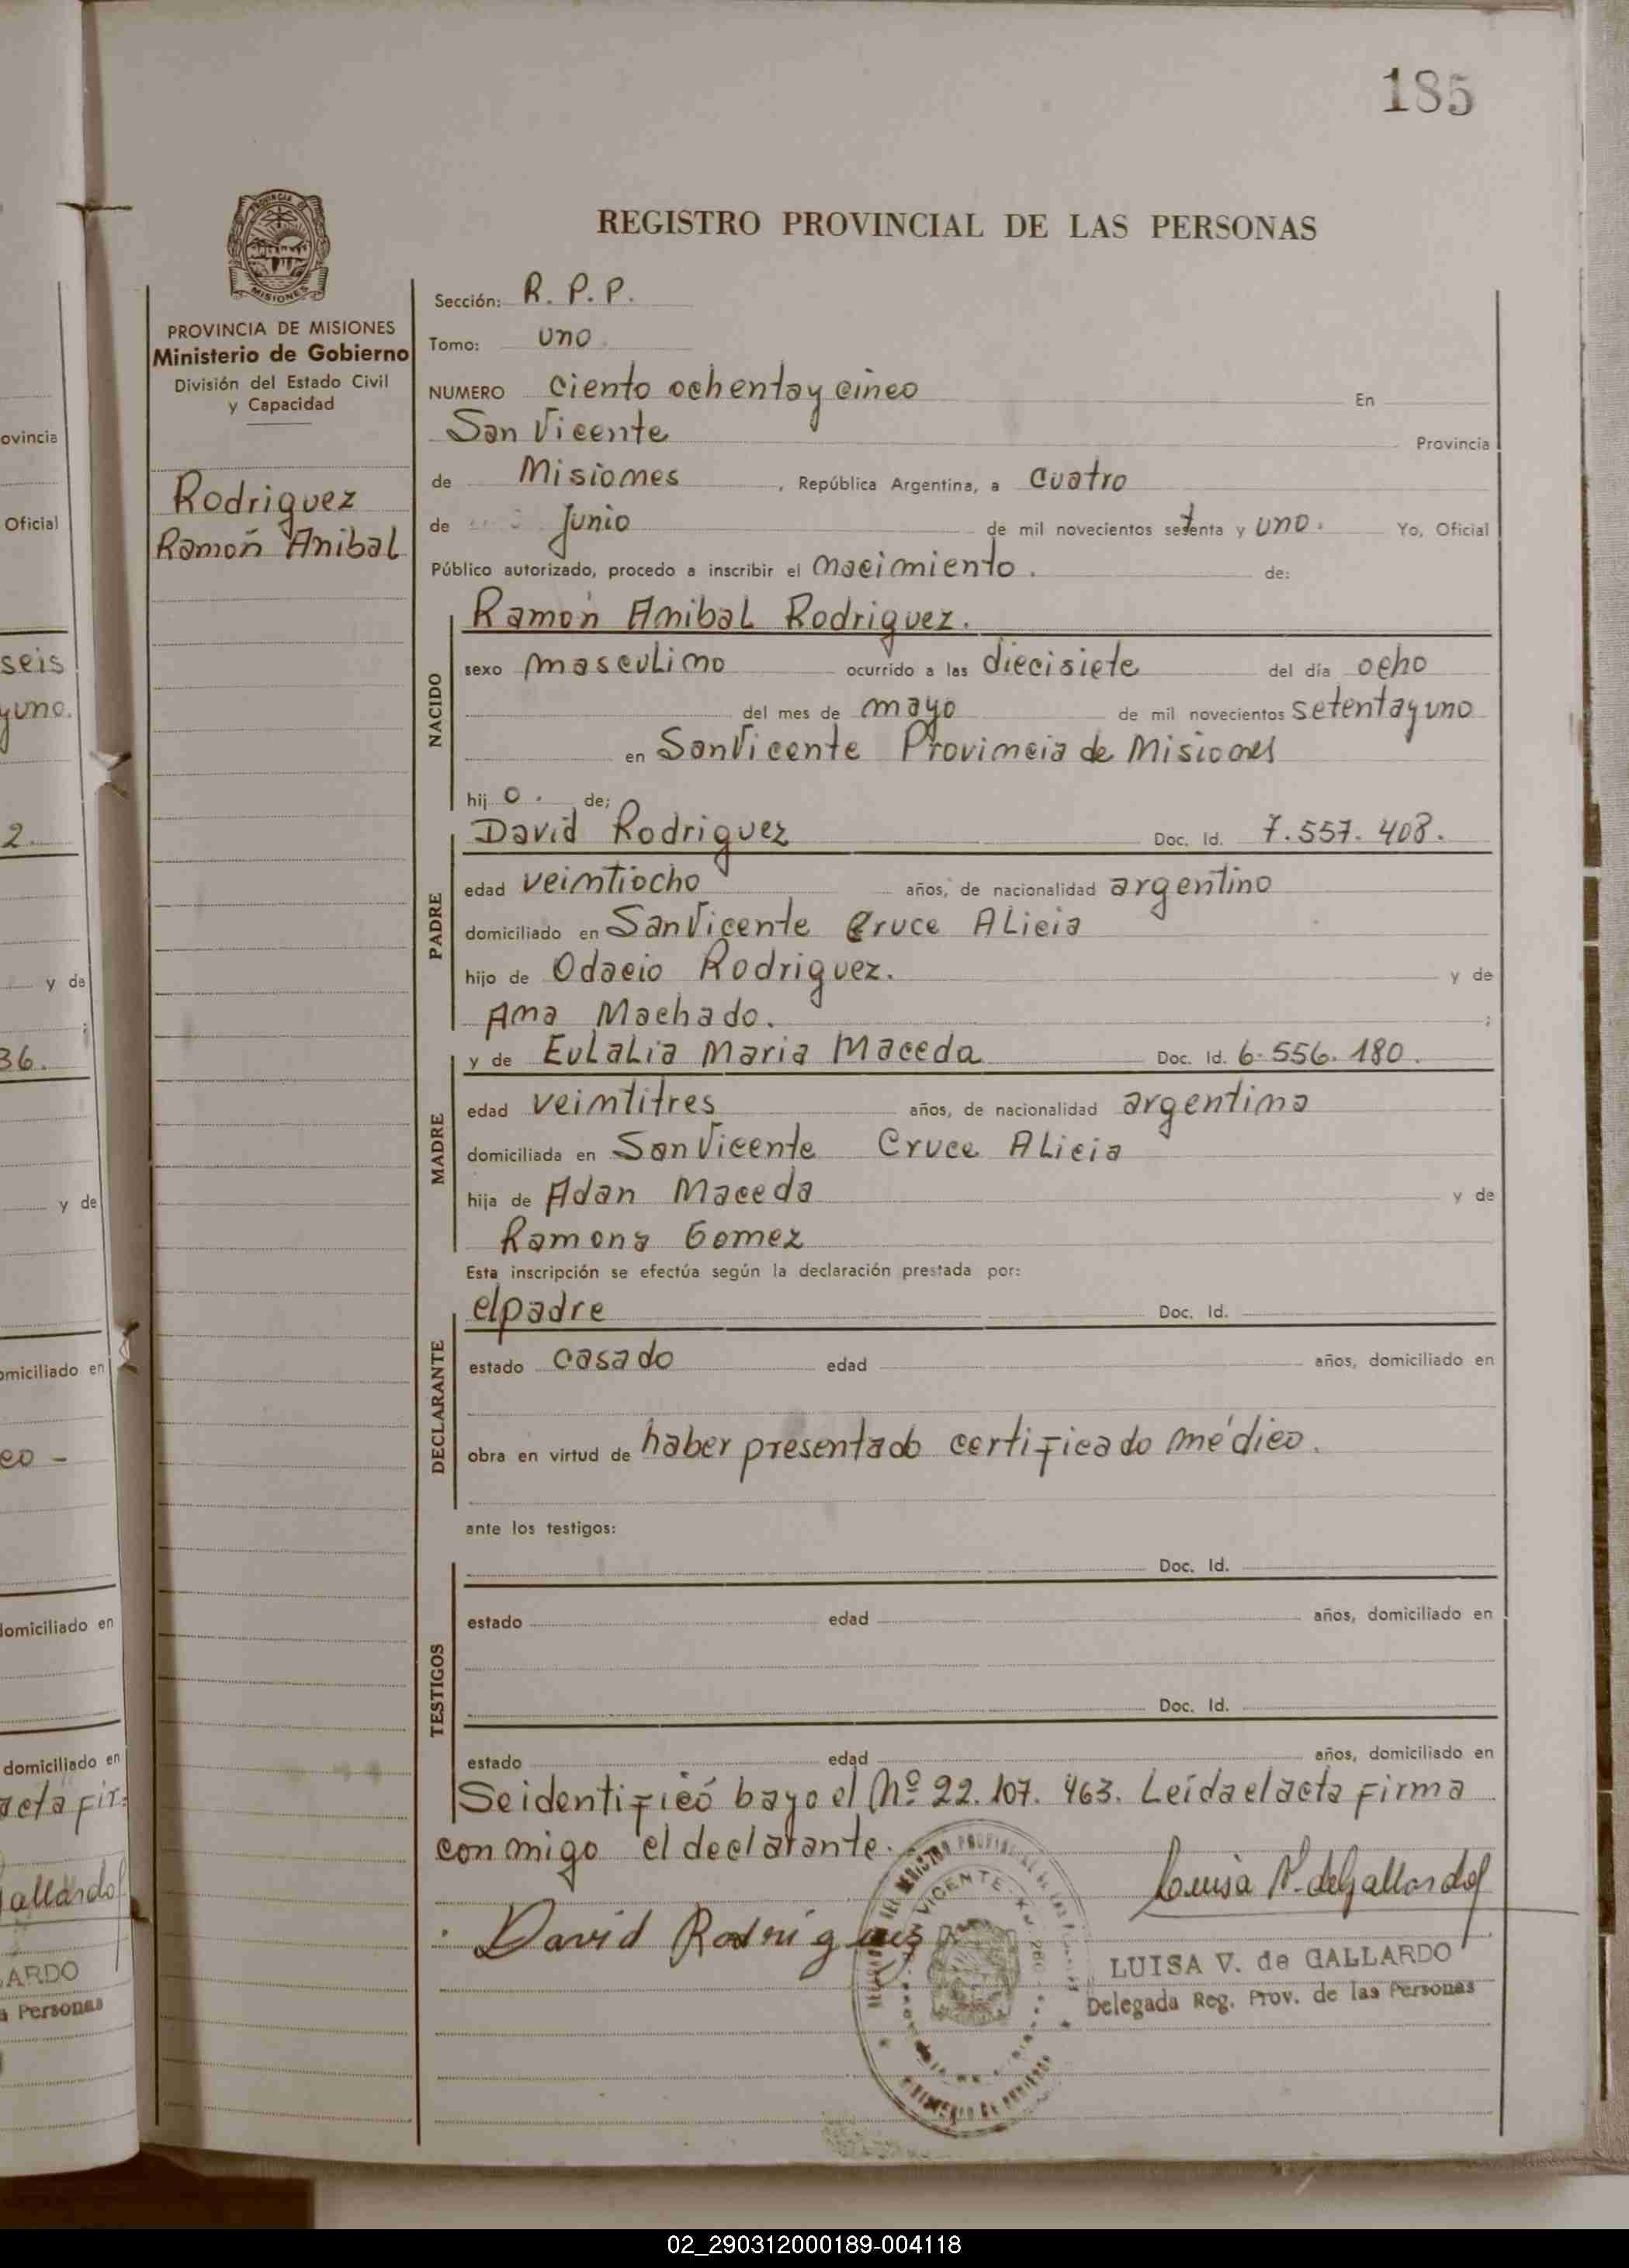 185
REGISTRO PROVINCIAL DE LAS PERSONAS
PROVINCIA DE
MISIONES
PROVINCIA DE MISIONES
Ministerio de Gobierno
División del Estado Civil
y Capacidad
Rodriguez
Ramón Anibal
Sección: R. P. P.
Tomo: uno
NUMERO ciento ochenta y cinco En
San Vicente Provincia
de Misiones, República Argentina, a cuatro
de Junio de mil novecientos setenta y uno. Yo, Oficial
Público autorizado, procedo a inscribir el nacimiento. de:
NACIDO
Ramón Anibal Rodriguez.
sexo masculino ocurrido a las diecisiete del día ocho
del mes de mayo de mil novecientos setenta y uno
en San Vicente Provincia de Misiones
hijo. de;
PADRE
David Rodriguez Doc. Id. 7.557.408.
edad veintiocho años, de nacionalidad argentino
domiciliado en San Vicente Cruce Alicia
hijo de Odacio Rodriguez. y de
Ana Machado. ;
MADRE
y de Eulalia Maria Maceda Doc. Id. 6.556.180.
edad veintitres años, de nacionalidad argentina
domiciliada en San Vicente Cruce Alicia
hija de Adan Maceda y de
Ramona Gomez
Esta inscripción se efectúa según la declaración prestada por:
DECLARANTE
el padre Doc. Id.
estado casado edad años, domiciliado en
obra en virtud de haber presentado certificado médico.
ante los testigos:
TESTIGOS
Doc. Id.
estado edad años, domiciliado en
Doc. Id.
estado edad años, domiciliado en
Se identificó bajo el Nº 22.107.463. Leída el acta firma
conmigo el declarante.
David Rodriguez
Luisa V. de Gallardo
LUISA V. de GALLARDO
Delegada Reg. Prov. de las Personas
VICENTE
ovincia
Oficial
seis
y uno.
2.
y de
36.
y de
omiciliado en
co -
domiciliado en
domiciliado en
acta fir-
Gallardo
LARDO
s Personas
02_290312000189-004118